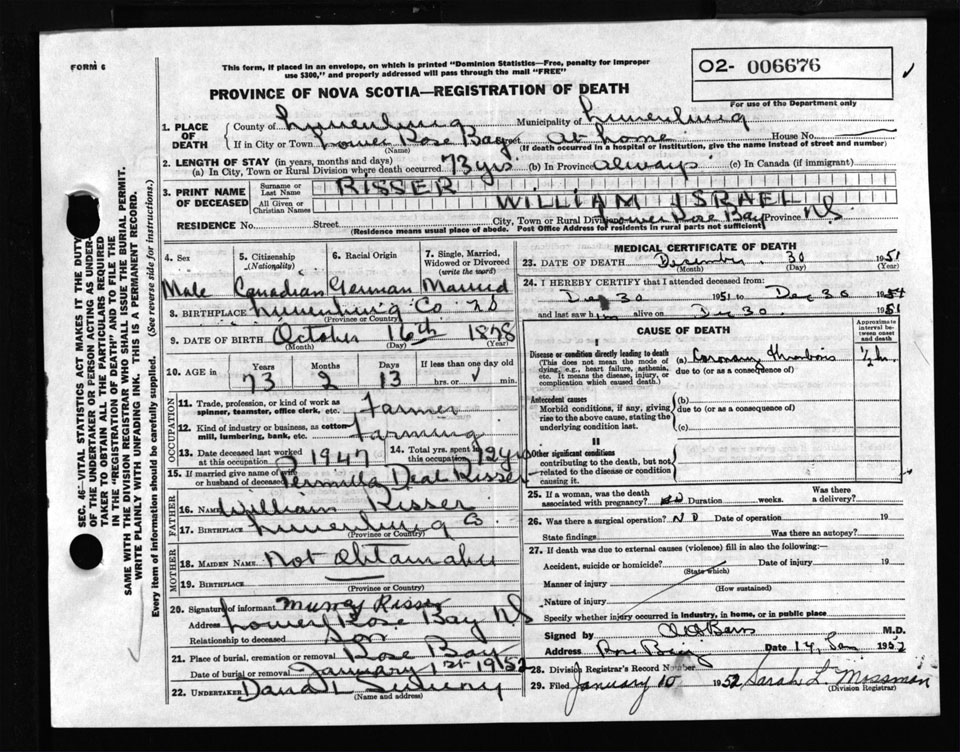 FORM 6
This form, if placed in an envelope, on which is printed "Dominion Statistics—Free, penalty for improper
use $300," and properly addressed will pass through the mail "FREE"
02- 006676
For use of the Department only
PROVINCE OF NOVA SCOTIA—REGISTRATION OF DEATH
1. PLACE OF DEATH
County of Lunenburg Municipality of Lunenburg
If in City or Town Lower Rose Bay Street At home House No.
(Name) (If death occurred in a hospital or institution, give the name instead of street and number)
2. LENGTH OF STAY (in years, months and days)
(a) In City, Town or Rural Division where death occurred 73 yrs (b) In Province always (c) In Canada (if immigrant)
3. PRINT NAME OF DECEASED
Surname or Last Name RISSER
All Given or Christian Names WILLIAM ISRAEL
RESIDENCE No. Street City, Town or Rural Division Lower Rose Bay Province NS
(Residence means usual place of abode. Post Office Address for residents in rural parts not sufficient)
4. Sex 5. Citizenship (Nationality) 6. Racial Origin 7. Single, Married, Widowed or Divorced (write the word)
Male Canadian German Married
8. BIRTHPLACE Lunenburg Co NS
(Province or Country)
9. DATE OF BIRTH October 16th 1878
(Month) (Day) (Year)
10. AGE in Years Months Days If less than one day old
73 2 13 hrs. or min.
OCCUPATION
11. Trade, profession, or kind of work as spinner, teamster, office clerk, etc. Farmer
12. Kind of industry or business, as cotton-mill, lumbering, bank, etc. Farming
13. Date deceased last worked at this occupation 1947 14. Total yrs. spent in this occupation yrs
15. If married give name of wife or husband of deceased Deal Risser
FATHER
16. Name William Risser
17. Birthplace Lunenburg Co.
(Province or Country)
MOTHER
18. MAIDEN NAME Not Obtainable
19. BIRTHPLACE
(Province or Country)
20. Signature of informant Murray Risser
Address Lower Rose Bay NS
Relationship to deceased Son
21. Place of burial, cremation or removal Rose Bay
Date of burial or removal January 1st 1952
22. UNDERTAKER David L
(Name and address)
MEDICAL CERTIFICATE OF DEATH
23. DATE OF DEATH December 30 1951
(Month) (Day) (Year)
24. I HEREBY CERTIFY that I attended deceased from:
Dec 30 1951 to Dec 30 1951
and last saw him alive on Dec 30 1951
CAUSE OF DEATH
Approximate interval between onset and death
I
Disease or condition directly leading to death
(This does not mean the mode of dying, e.g., heart failure, asthenia, etc. It means the disease, injury, or complication which caused death.)
(a) Coronary thrombosis ½ hr.
due to (or as a consequence of)
Antecedent causes
Morbid conditions, if any, giving rise to the above cause, stating the underlying condition last.
(b)
due to (or as a consequence of)
(c)
II
Other significant conditions
contributing to the death, but not related to the disease or condition causing it.
25. If a woman, was the death associated with pregnancy? Duration weeks. Was there a delivery?
26. Was there a surgical operation? NO Date of operation 19
State findings Was there an autopsy?
27. If death was due to external causes (violence) fill in also the following:
Accident, suicide or homicide? Date of injury 19
(State which)
Manner of injury
(How sustained)
Nature of injury
Specify whether injury occurred in industry, in home, or in public place
Signed by M.D.
Address Rose Bay Date 14 Jan 1952
28. Division Registrar's Record Number
29. Filed January 10 1952 Sarah L Mossman
(Division Registrar)
SEC. 46—VITAL STATISTICS ACT MAKES IT THE DUTY
OF THE UNDERTAKER OR PERSON ACTING AS UNDER-
TAKER TO OBTAIN ALL THE PARTICULARS REQUIRED
IN THE "REGISTRATION OF DEATH" AND TO FILE THE
SAME WITH THE DIVISION REGISTRAR WHO SHALL ISSUE THE BURIAL PERMIT.
WRITE PLAINLY WITH UNFADING INK. THIS IS A PERMANENT RECORD.
Every item of information should be carefully supplied. (See reverse side for instructions.)